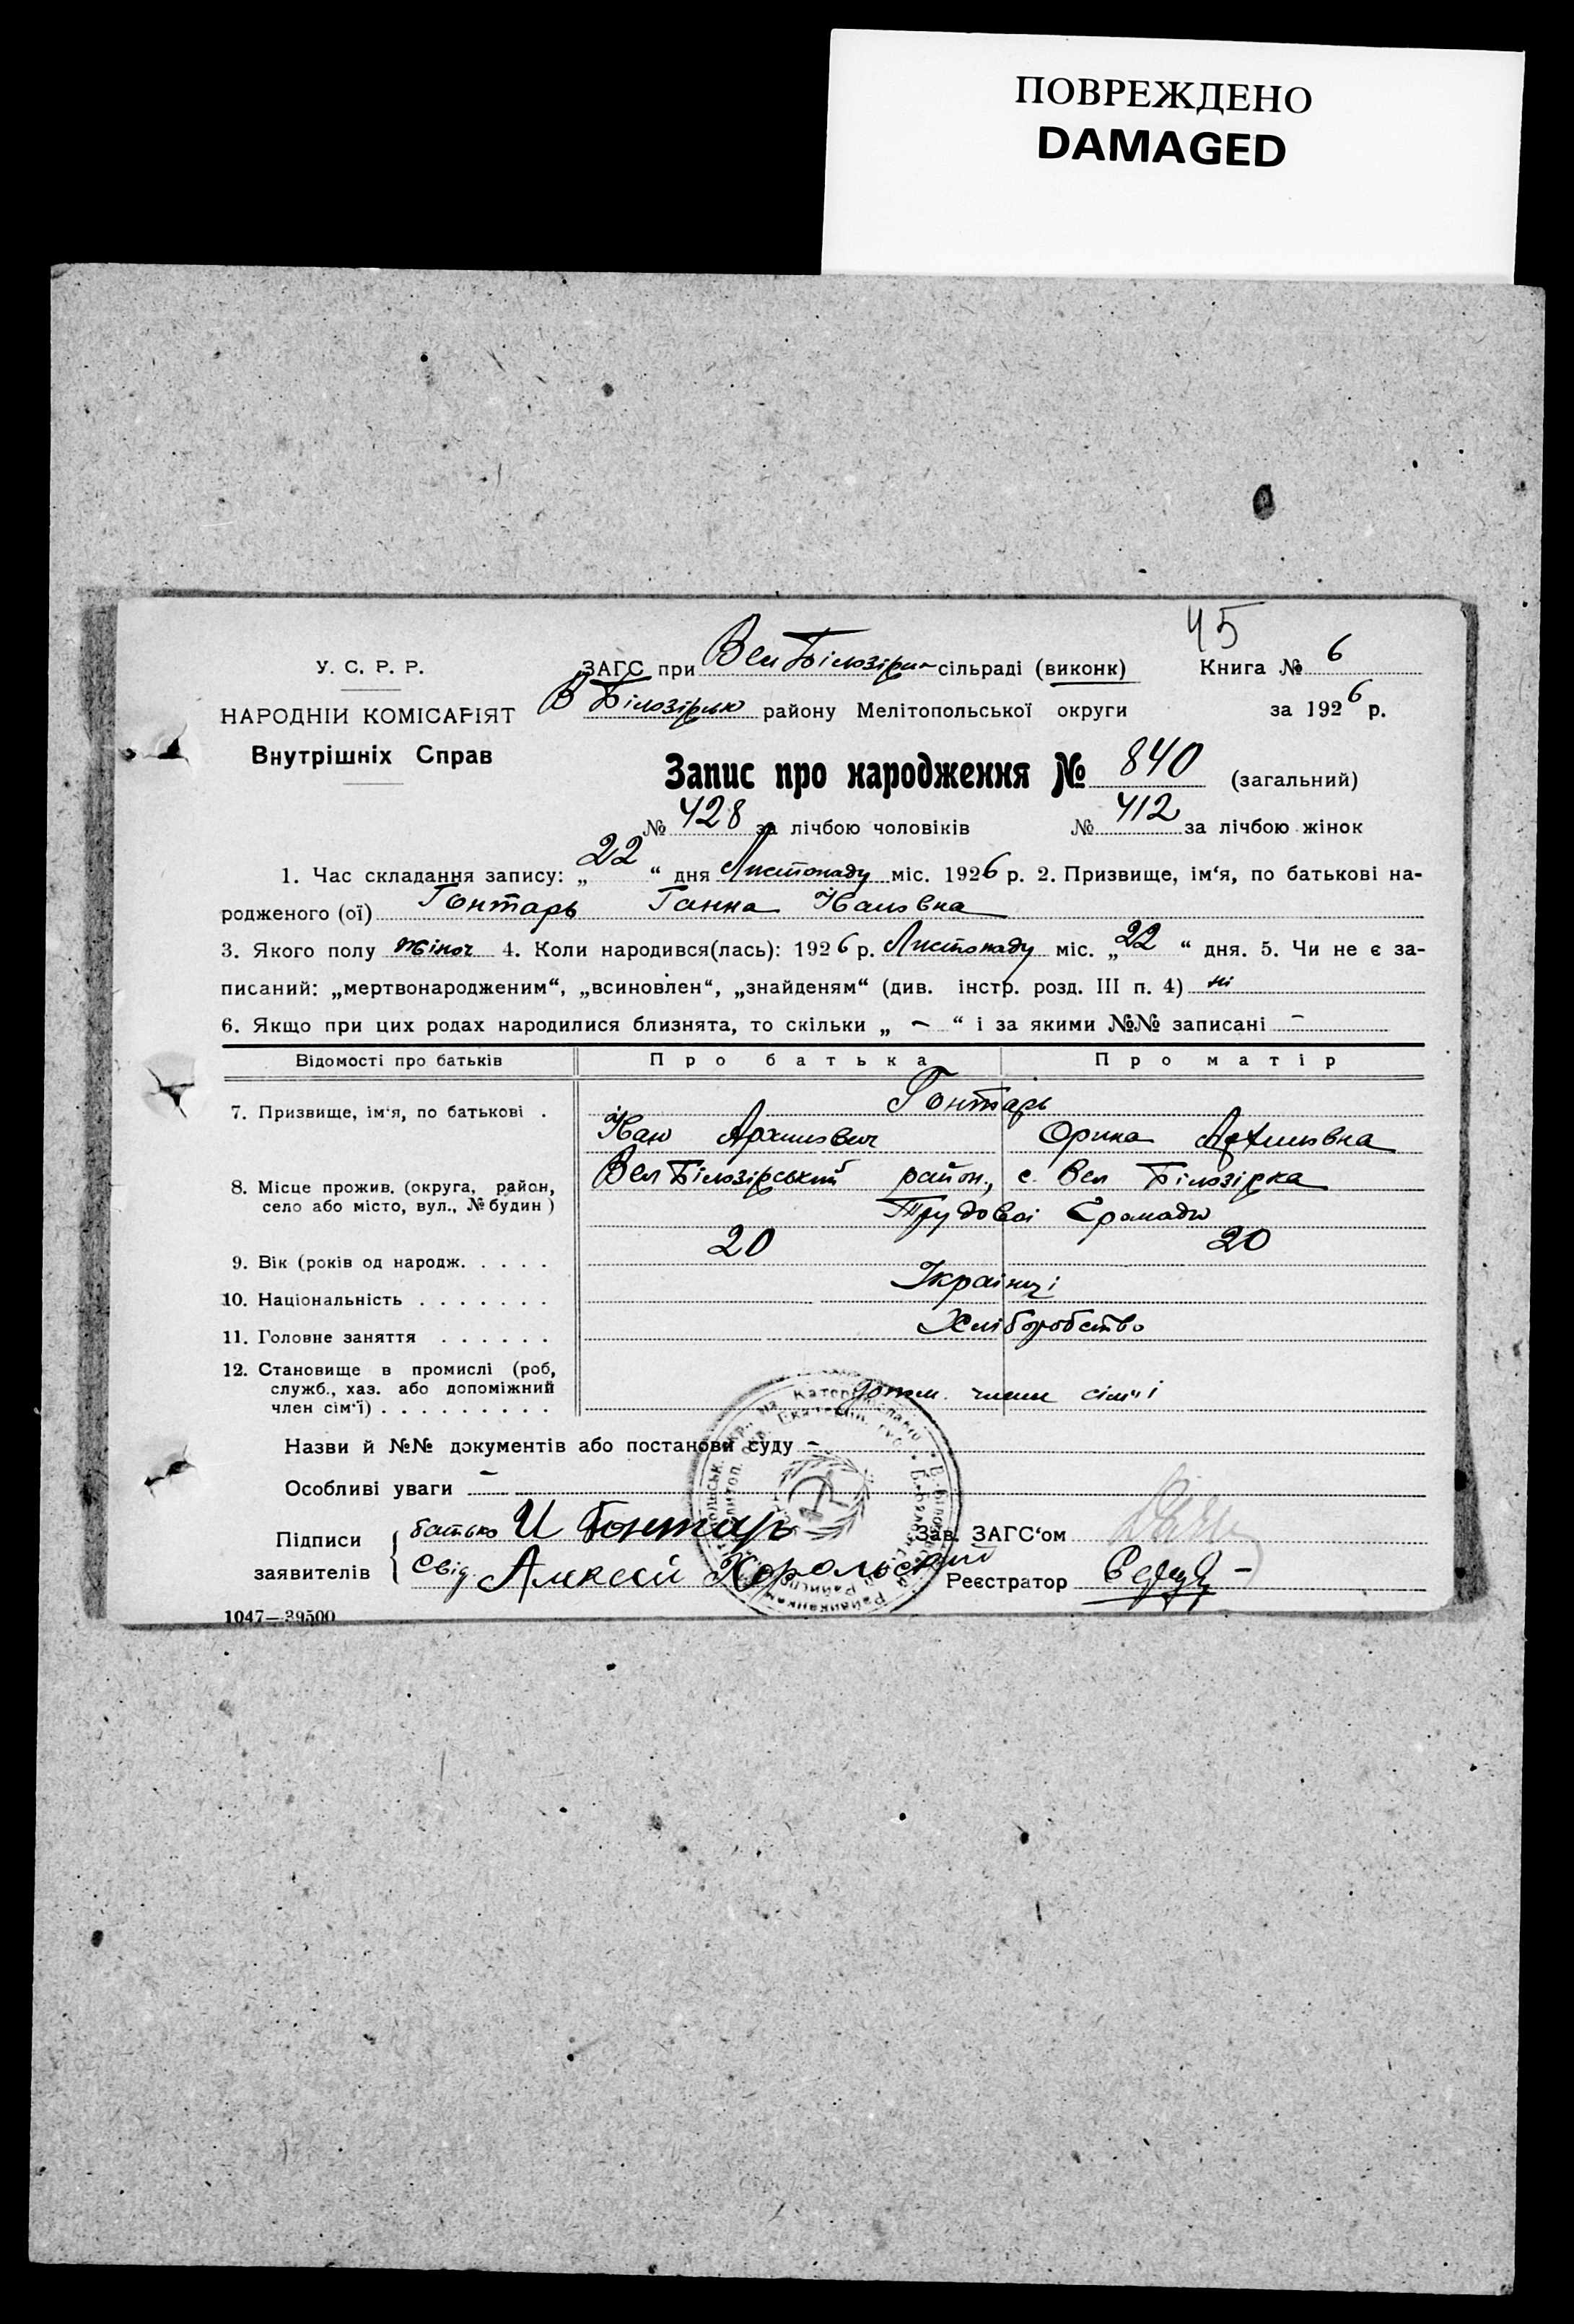 ПОВРЕЖДЕНО
DAMAGED
45
У. С. Р. Р.
НАРОДНІЙ КОМІСАРІЯТ
Внутрішніх Справ
ЗАГС при Вел Білозірк- сільраді (виконк)
Книга № 6
В Білозірько району Мелітопольської округи
за 1926 р.
Запис про народження № 840 (загальний)
№ 428 за лічбою чоловіків № 412 за лічбою жінок
1. Час складання запису: „22“ дня Листопаду міс. 1926 р. 2. Призвище, ім‘я, по батькові на-
родженого (ої) Гонтарь Ганна Івановна
3. Якого полу жіноч 4. Коли народився(лась): 1926 р. Листопаду міс. „22“ дня. 5. Чи не є за-
писаний: „мертвонародженим“, „всиновлен“, „знайденям“ (див. інстр. розд. III п. 4) ні
6. Якщо при цих родах народилися близнята, то скільки „ – “ і за якими №№ записані –
Відомості про батьків Про батька Про матір
7. Призвище, ім‘я, по батькові . Гонтарь
Іван Архипович Орина
8. Місце прожив. (округа, район, село або місто, вул., № будин) Вел Білозірський район., с. Вел Білозірка
Трудовой Громади
9. Вік (років од народж. . . . . 20 20
10. Національність . . . . . . . Українці
11. Головне заняття . . . . . . Хліборобство
12. Становище в промислі (роб, служб., хаз. або допоміжний член сім‘ї) . . . . . . . . . допом. члени сім'ї
Назви й №№ документів або постанови суду –
Особливі уваги –
Підписи заявителів
батько И Гонтарь
Свід Алексей Хорольский
Зав. ЗАГС‘ом
Реєстратор
1047—39500